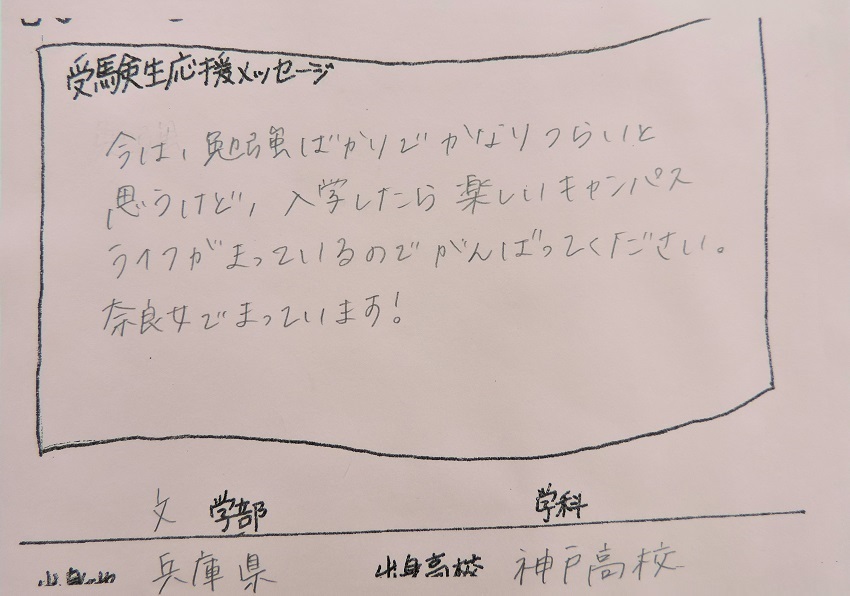 受験生応援メッセージ
今は、勉強ばかりでかなりつらいと
思うけど、入学したら楽しいキャンパス
ライフがまっているのでがんばってください。
奈良女でまっています!
文 学部 学科
兵庫県 出身高校 神戸高校